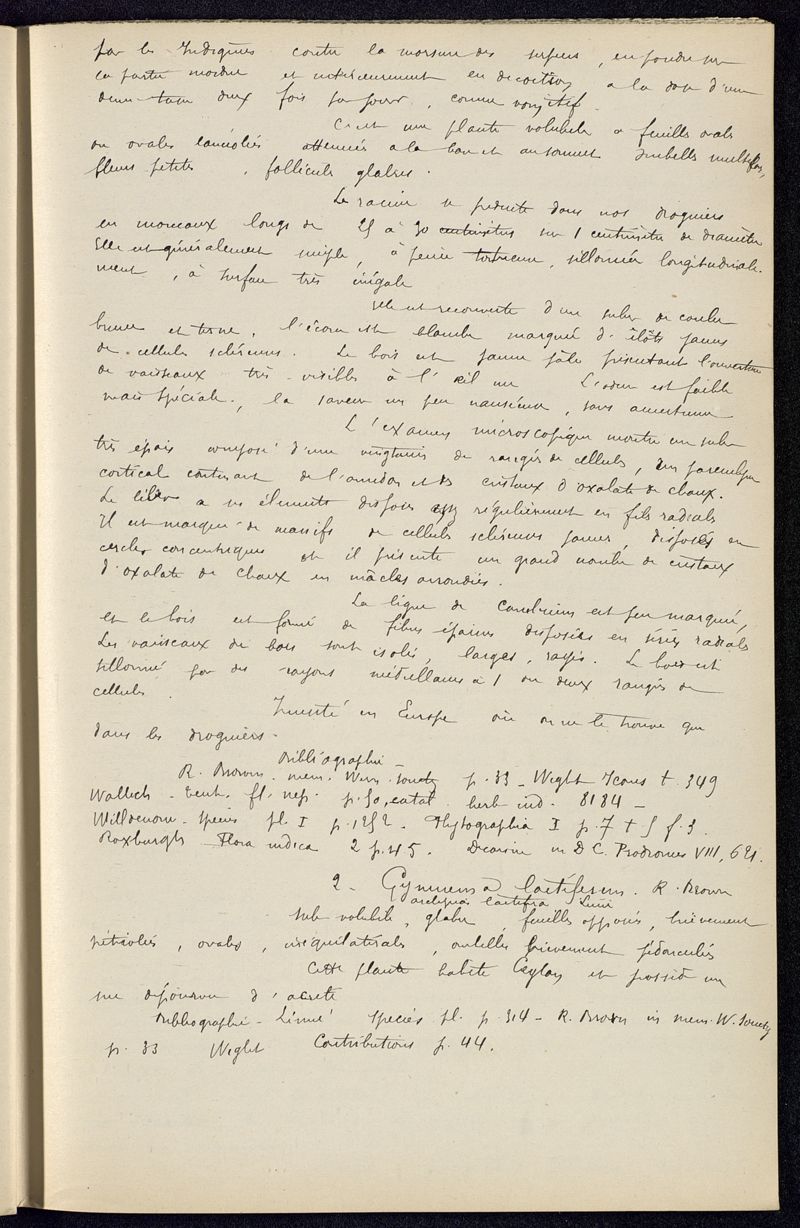 par les Indigènes contre la morsure des serpents, en poudre sur
la partie mordue et intérieurement en décoction à la dose d'une
demi-tasse deux fois par jour, comme vomitif.
C'est une plante volubile à feuilles ovales
ou ovales lancéolées atténuées à la base et au sommet ombelles multiflores,
fleurs petites, follicules glabres.
La racine se présente dans nos droguiers
en morceaux longs de 25 à 30 centimètres sur 1 centimètre de diamètre
Elle est généralement simple, à peine tortueuse, sillonnée longitudinale-
ment, à surface très inégale
Elle est recouverte d'un suber de couleur
brune et terne, l'écorce est blanche marquée d'îlots jaunes
de cellules scléreuses. Le bois est jaune pâle présentant l'ouverture
de vaisseaux très visibles à l'œil nu L'odeur est faible
mais spéciale, la saveur un peu nauséeuse, sans amertume
L'examen microscopique montre un suber
très épais composé d'une vingtaine de rangées de cellules, un parenchyme
cortical contenant de l'amidon et des cristaux d'oxalate de chaux.
Le liber a ses éléments disposés régulièrement en fils radials
Il est marqué de massifs de cellules scléreuses jaunes, disposés en
cercles concentriques et il présente un grand nombre de cristaux
d'oxalate de chaux en mâcles arrondies.
La ligne de cambium est peu marquée,
et le bois est formé de fibres épaisses disposées en séries radials
Les vaisseaux de bois sont isolés, larges, rayés. Le bois est
sillonné par des rayons médullaires à 1 ou deux rangées de
cellules.
Inusité en Europe où on ne le trouve que
dans les droguiers.
Bibliographie -
R. Brown. mem. Wern. Society p. 33 - Wight Icones t. 349
Wallich - tent. fl. nep. p. 50, catal. herb. ind. 8184 -
Willdenow - species pl. I p. 1252 - Phytographia I p. 7 t 5 f. 3.
Roxburgh Flora indica 2 p. 45. Decaisne in D C. Prodromus VIII, 621.
2 - Gymnema lactiferum. R. Brown
asclepias lactifera Linné
sub volubile, glabre, feuilles opposées, brièvement
pétiolées, ovales, inéquilatérales, ombelles brièvement pédonculés
Cette plante habite Ceylan et possède un
suc dépourvu d'acreté
Bibliographie - Linné species pl. p. 314 - R. Brown in mem. W. Society
p. 33 Wight Contributions p. 44.